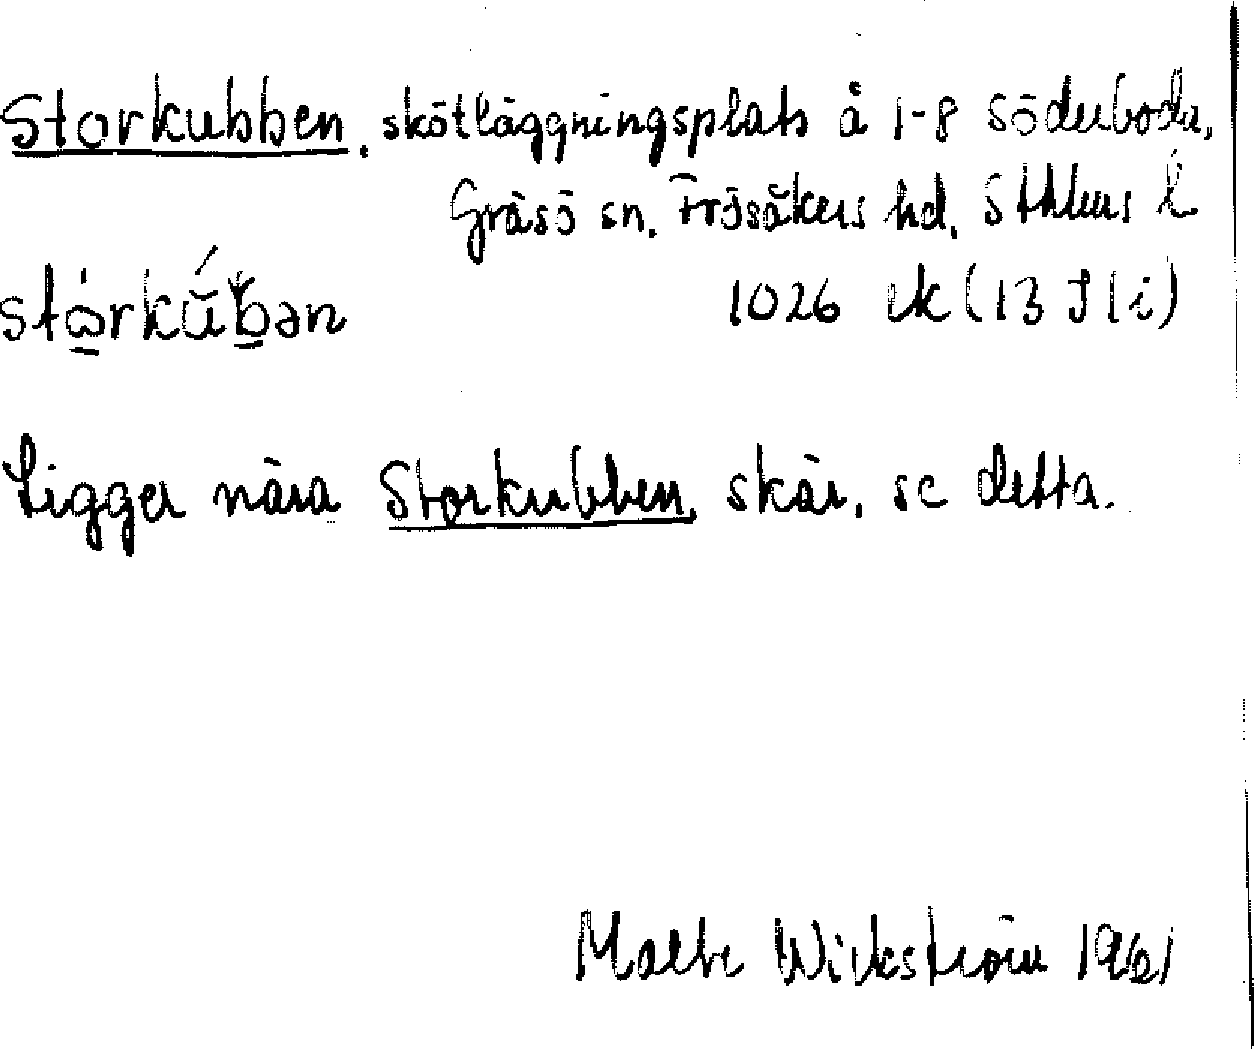 Storkubben, skötläggningsplats å 1-8 Söderboda,
Gräsö sn. Frösåkers hd. Sthlms l
stå̀rkúban
1026 ek (13 I 1 i)
Ligger nära Storkubben, skär, se detta.
Malte Wickström 1961